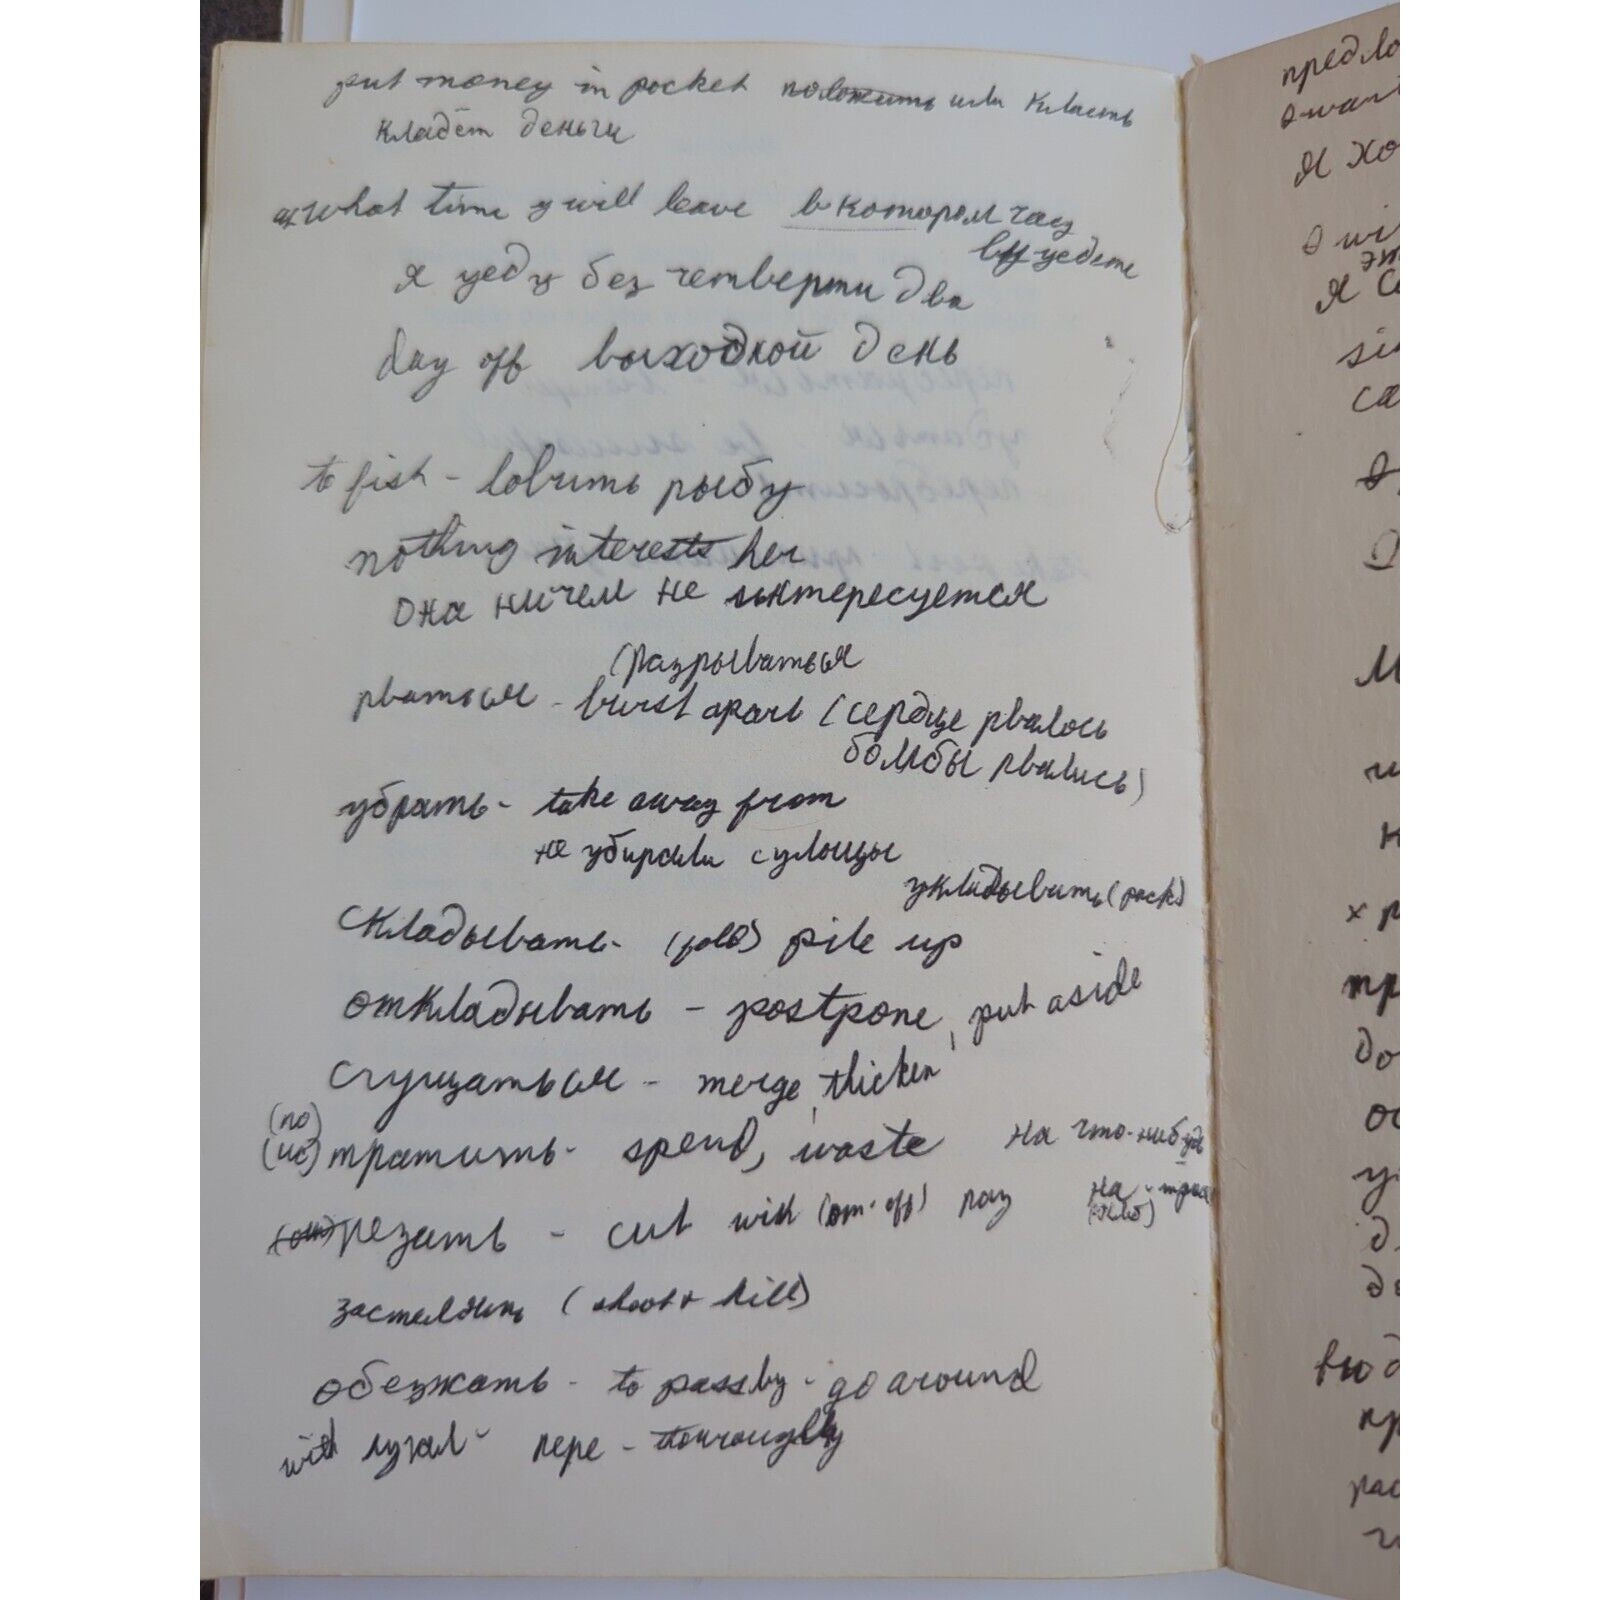 put money in pocket положить или класть
кладёт деньги
at what time y will leave в котором часу
вы уедете
я уеду без четверти два
day off выходной день
to fish - ловить рыбу
nothing interests her
она ничем не интересуется
(разрываться
рваться - burst apart (сердце рвалось
бомбы рвались)
убрать - take away from
не убирали с улицы
укладывать (pack)
складывать - (fold) pile up
откладывать - postpone, put aside
сгущаться - merge, thicken
(по)
(ис) тратить - spend, waste на что-нибудь
резать - cut with (от-off) раз
на
застелить (shoot + kill)
обезжать - to pass by - go around
with пере - thouroughly
предло
I wan
я хо
I wi
я С
si
ca
I
М
и
к
х р
тр
до
ос
у
д
до
вы
пр
рас